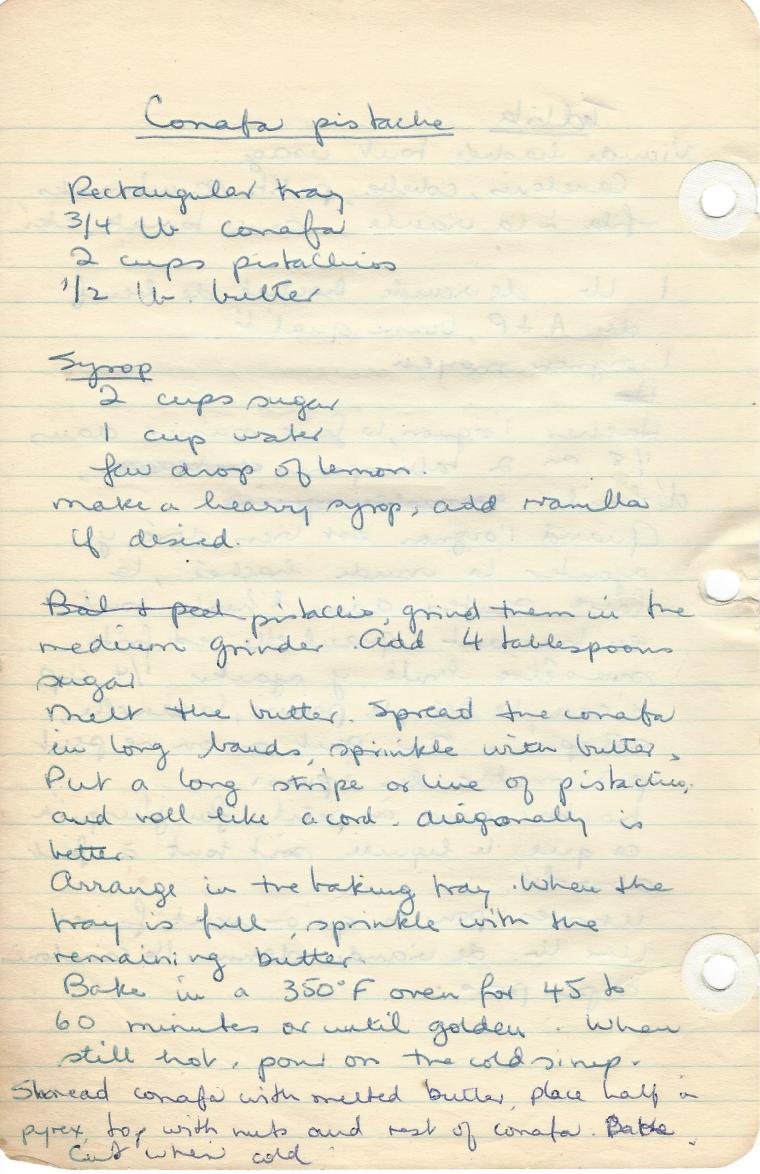 Conafa pistache
Rectangular tray
3/4 lb conafa
2 cups pistachios
1/2 lb. butter
Syrop
2 cups sugar
1 cup water
few drop of lemon.
make a heavy syrop, add vanilla
if desired.
pistachio, grind them in the
medium grinder. Add 4 tablespoons
sugar
Melt the butter. Spread the conafa
in long bands, sprinkle with butter,
Put a long stripe or line of pistachio,
and roll like a cord. diagonally is
better.
Arrange in the baking tray. When the
tray is full, sprinkle with the
remaining butter
Bake in a 350°F oven for 45 to
60 minutes or until golden. When
still hot, pour on the cold sirup.
Shread conafa with melted butter, place half in
pyrex, top with nuts and rest of conafa. Bake.
Cut when cold